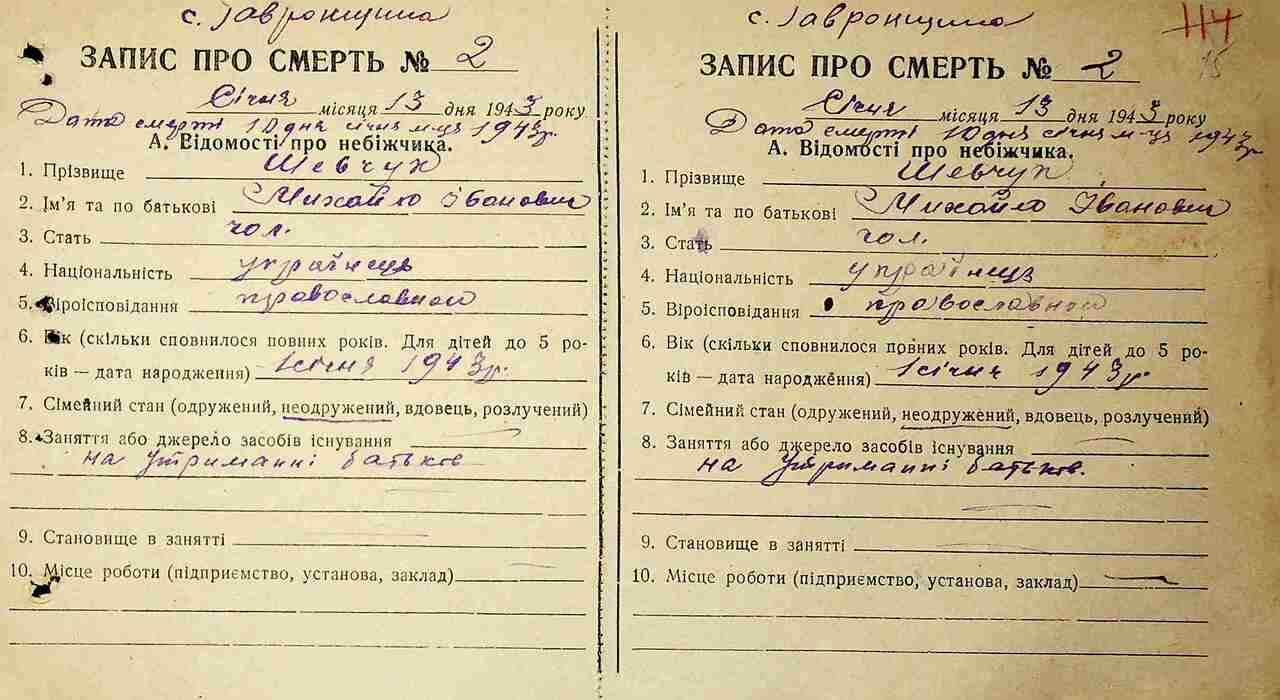 с. Гавронщина
ЗАПИС ПРО СМЕРТЬ № 2
Січня місяця 13 дня 1943 року
Дата смерті 10 дня січня м-ця 1943р.
А. Відомості про небіжчика.
1. Прізвище Шевчук
2. Ім'я та по батькові Михайло Іванович
3. Стать чол.
4. Національність українець
5. Віроісповідання православной
6. Вік (скільки сповнилося повних років. Для дітей до 5 ро-
ків — дата народження) 1 січня 1943р.
7. Сімейний стан (одружений, неодружений, вдовець, розлучений)
8. Заняття або джерело засобів існування
на утриманні батьків
9. Становище в занятті
10. Місце роботи (підприємство, установа, заклад)
с. Гавронщина
114
15
ЗАПИС ПРО СМЕРТЬ № 2
Січня місяця 13 дня 1943 року
Дата смерті 10 дня січня м-ця 1943р.
А. Відомості про небіжчика.
1. Прізвище Шевчук
2. Ім'я та по батькові Михайло Іванович
3. Стать чол.
4. Національність українець
5. Віроісповідання православной
6. Вік (скільки сповнилося повних років. Для дітей до 5 ро-
ків — дата народження) 1 січня 1943р.
7. Сімейний стан (одружений, неодружений, вдовець, розлучений)
8. Заняття або джерело засобів існування
на утриманні батьків.
9. Становище в занятті
10. Місце роботи (підприємство, установа, заклад)